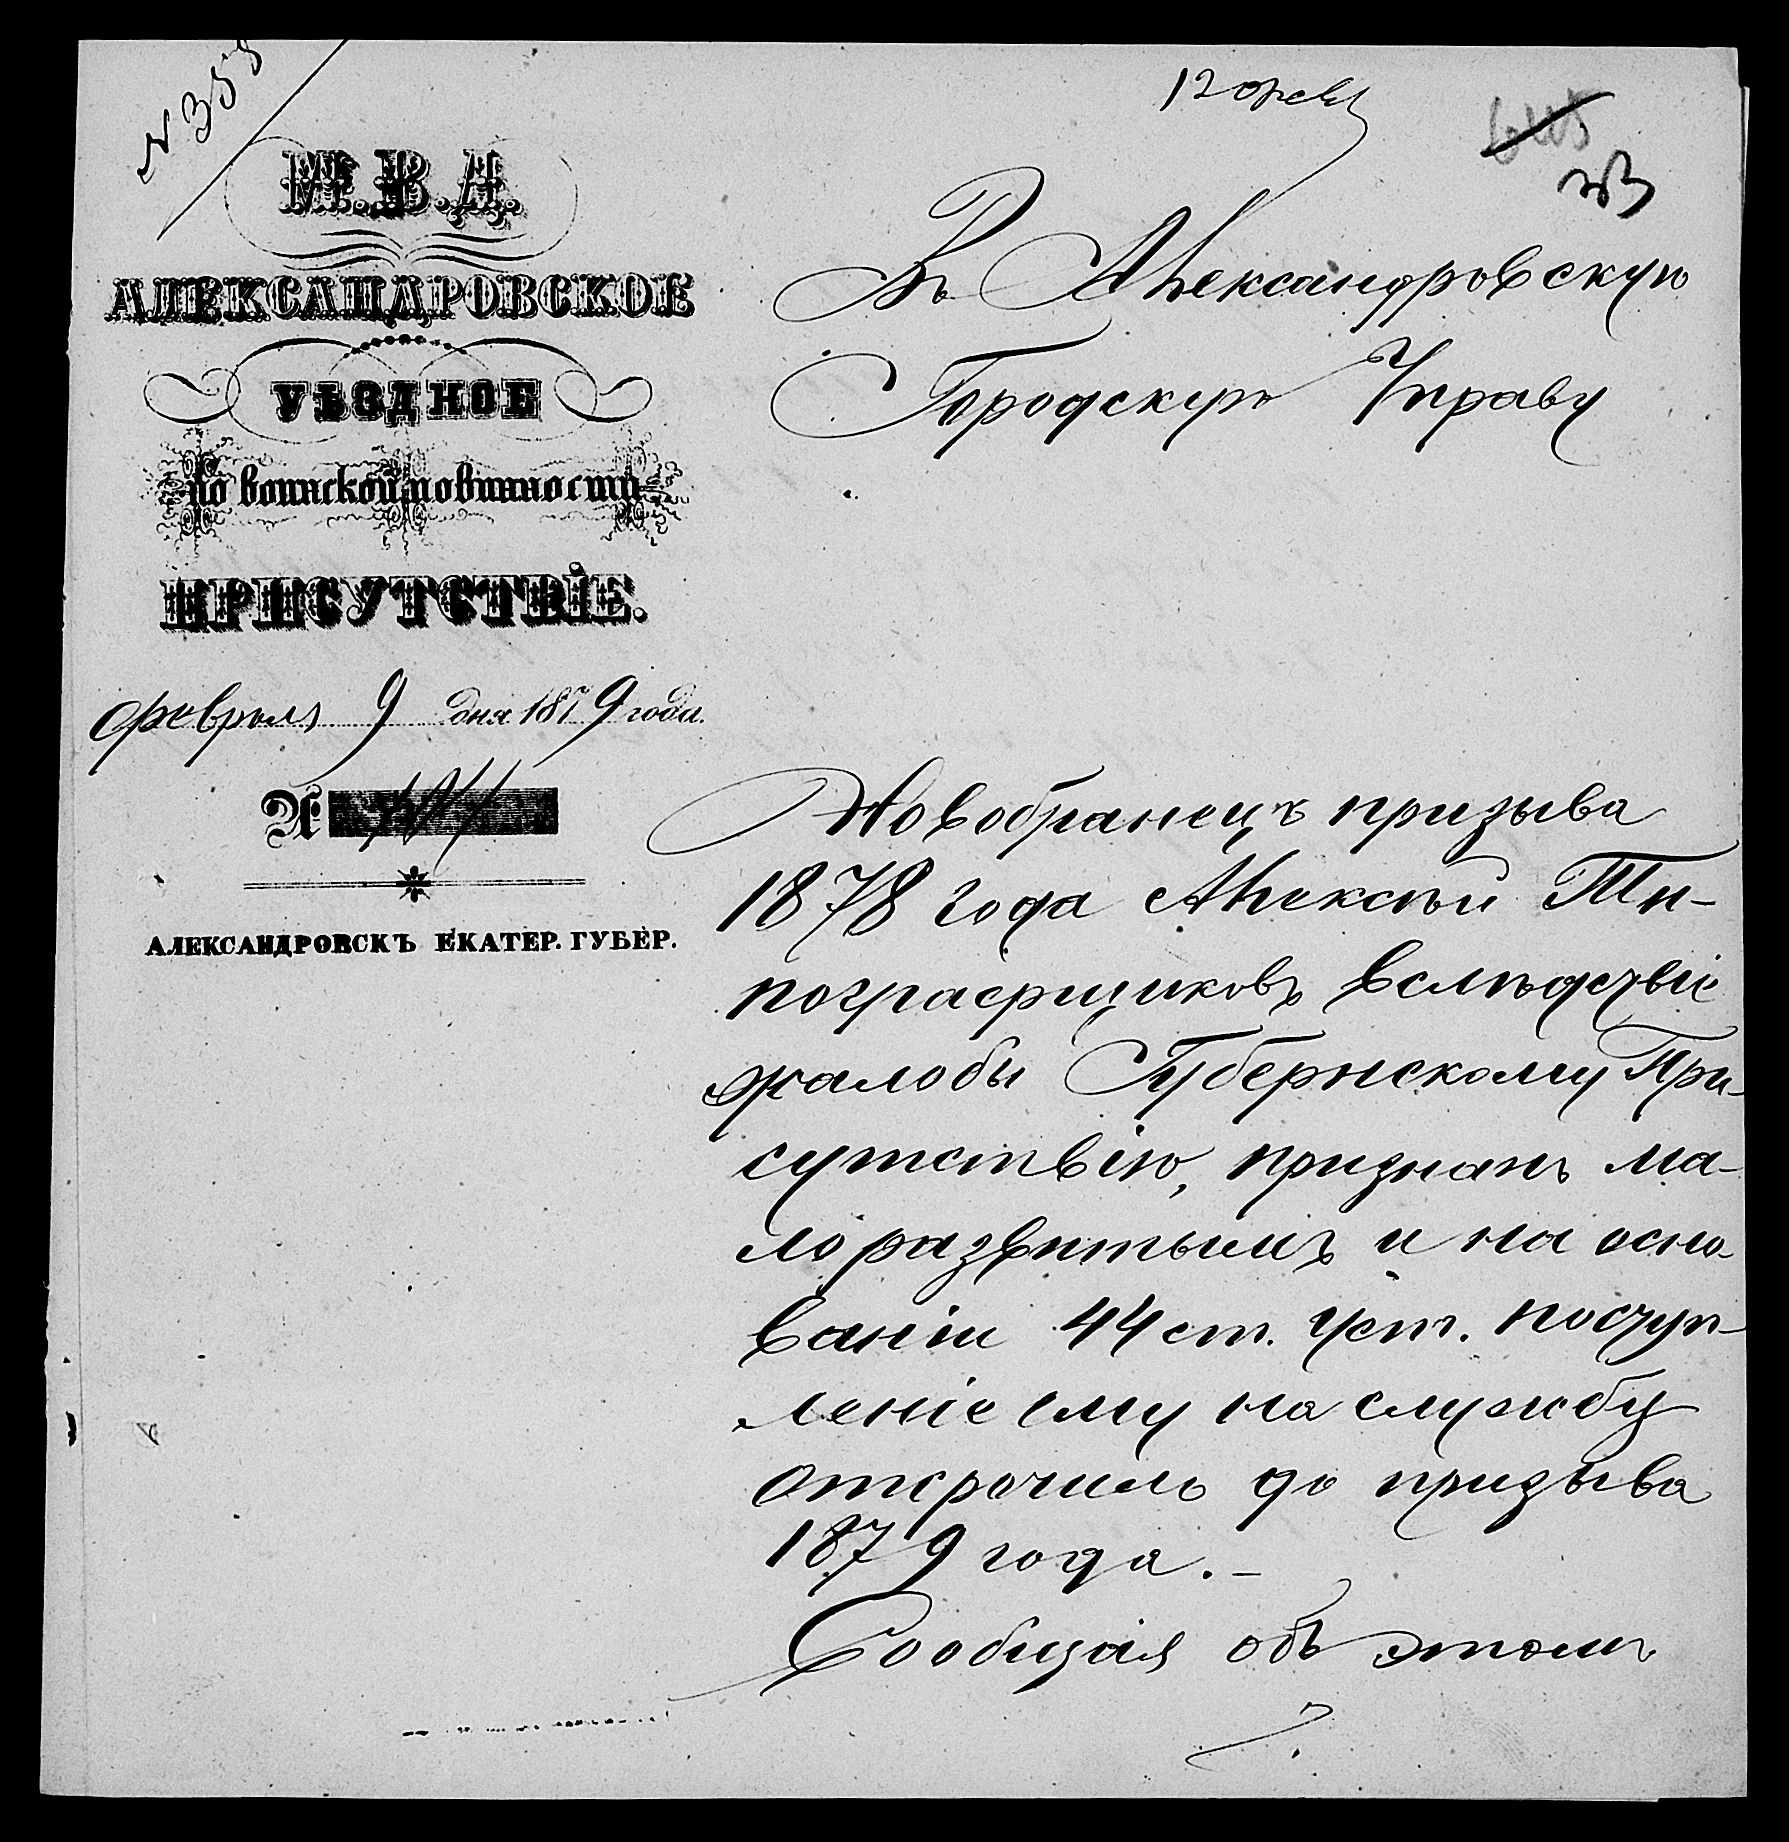 № 355
12 февр
М.В.Д.
АЛЕКСАНДРОВСКОЕ
УѢЗДНОЕ
по воинской повинности
ПРИСУТСТВІЕ.
февраля 9 дня 1879 года.
№
АЛЕКСАНДРОВСКЪ ЕКАТЕР. ГУБЕР.
Въ Александровскую
Городскую Управу
Новобранецъ призыва
1878 года Алексѣй Ти-
пографщиковъ вслѣдствіе
жалобы Губернскому При-
сутствію, признанъ ма-
лоразвитымъ и на осно-
ваніи 44 ст. Уст. поступ-
леніе ему на службу
отсрочено до призыва
1879 года.-
Сообщая объ этомъ